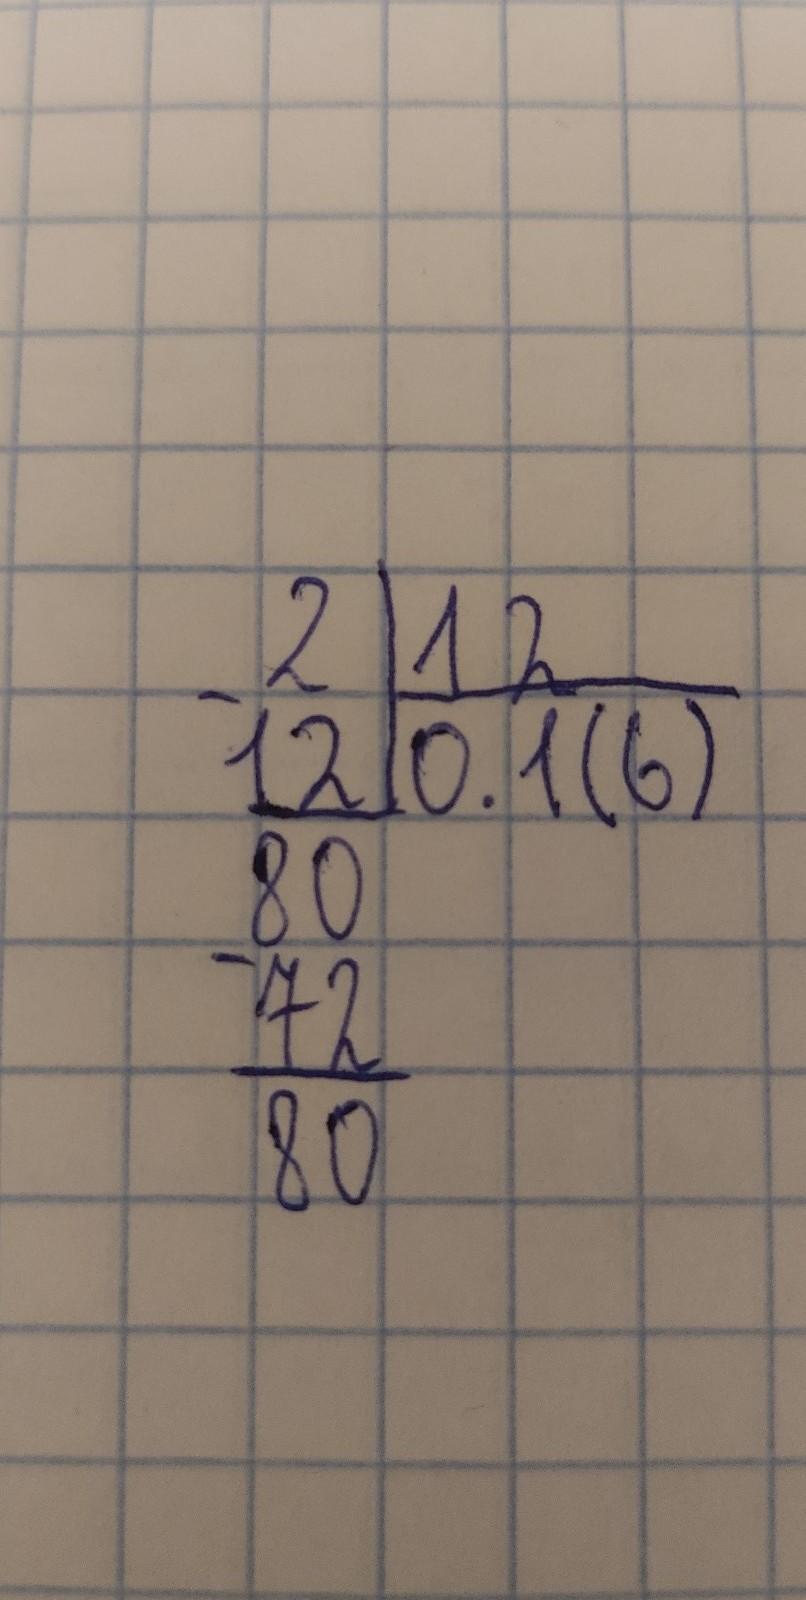 2 12
-12 0.1(6)
80
-72
80